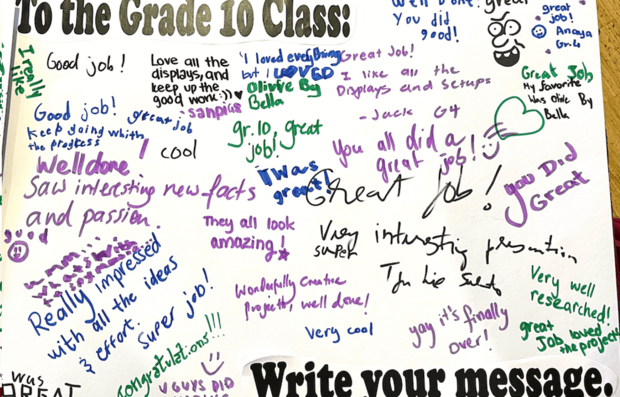 To the Grade 10 Class:
Well Done! great
You did
good!
great
job!
Anaya
Gr.4
I really
like
Good job!
Love all the
displays, and
keep up the
good work :))
Sanpias
"I loved everything
but I LOVED
Olivve By
Bella
Great Job!
I like all the
Displays and setups
- Jack G4
Great Job
My favorite
Was Olive By
Bella
Good job!
great job
Keep going whith
the progress
Well done!
cool
gr.10, great
job!
I Was
great!
You all did a
great job!
Great job!
you Did
Great
Saw interesting new facts
and passion.
good
They all look
amazing!
Very interesting presentation
super
Really impressed
with all the ideas
& effort.
Super job!
Wonderfully Creative
Projects, well done!
Very cool
yay it's finally
over!
Very well
researched!
great
Job loved
the project
congratulations!!!
was
GREAT
U GUYS DID
Write your message.